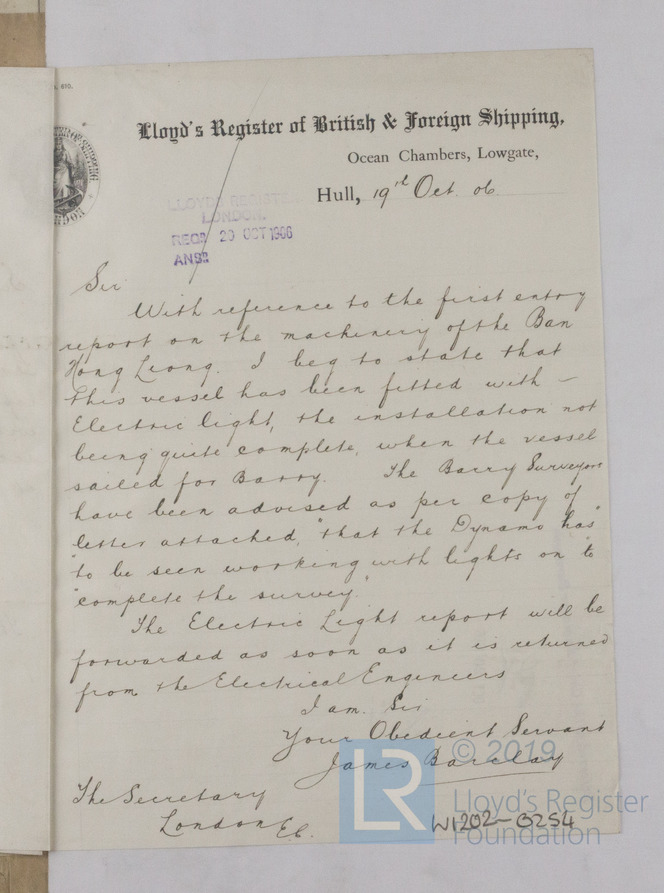 Lloyd's Register of British & Foreign Shipping,
Ocean Chambers, Lowgate,
Hull, 19th Oct. 06
LLOYD'S REGISTER
LONDON.
RECD 20 OCT 1906
ANSD
Sir
With reference to the first entry
report on the machinery of the Ban
Hong Liong. I beg to state that
this vessel has been fitted with –
Electric light, the installation not
being quite complete, when the vessel
sailed for Barry. The Barry Surveyors
have been advised as per copy of
letter attached, "that the Dynamo has"
"to be seen working with lights on to"
"complete the survey."
The Electric Light report will be
forwarded as soon as it is returned
from the Electrical Engineers
I am. Sir
Your Obedient Servant
James Barclay
The Secretary
London E.C.
W1202-0254
LR © 2019
Lloyd's Register
Foundation